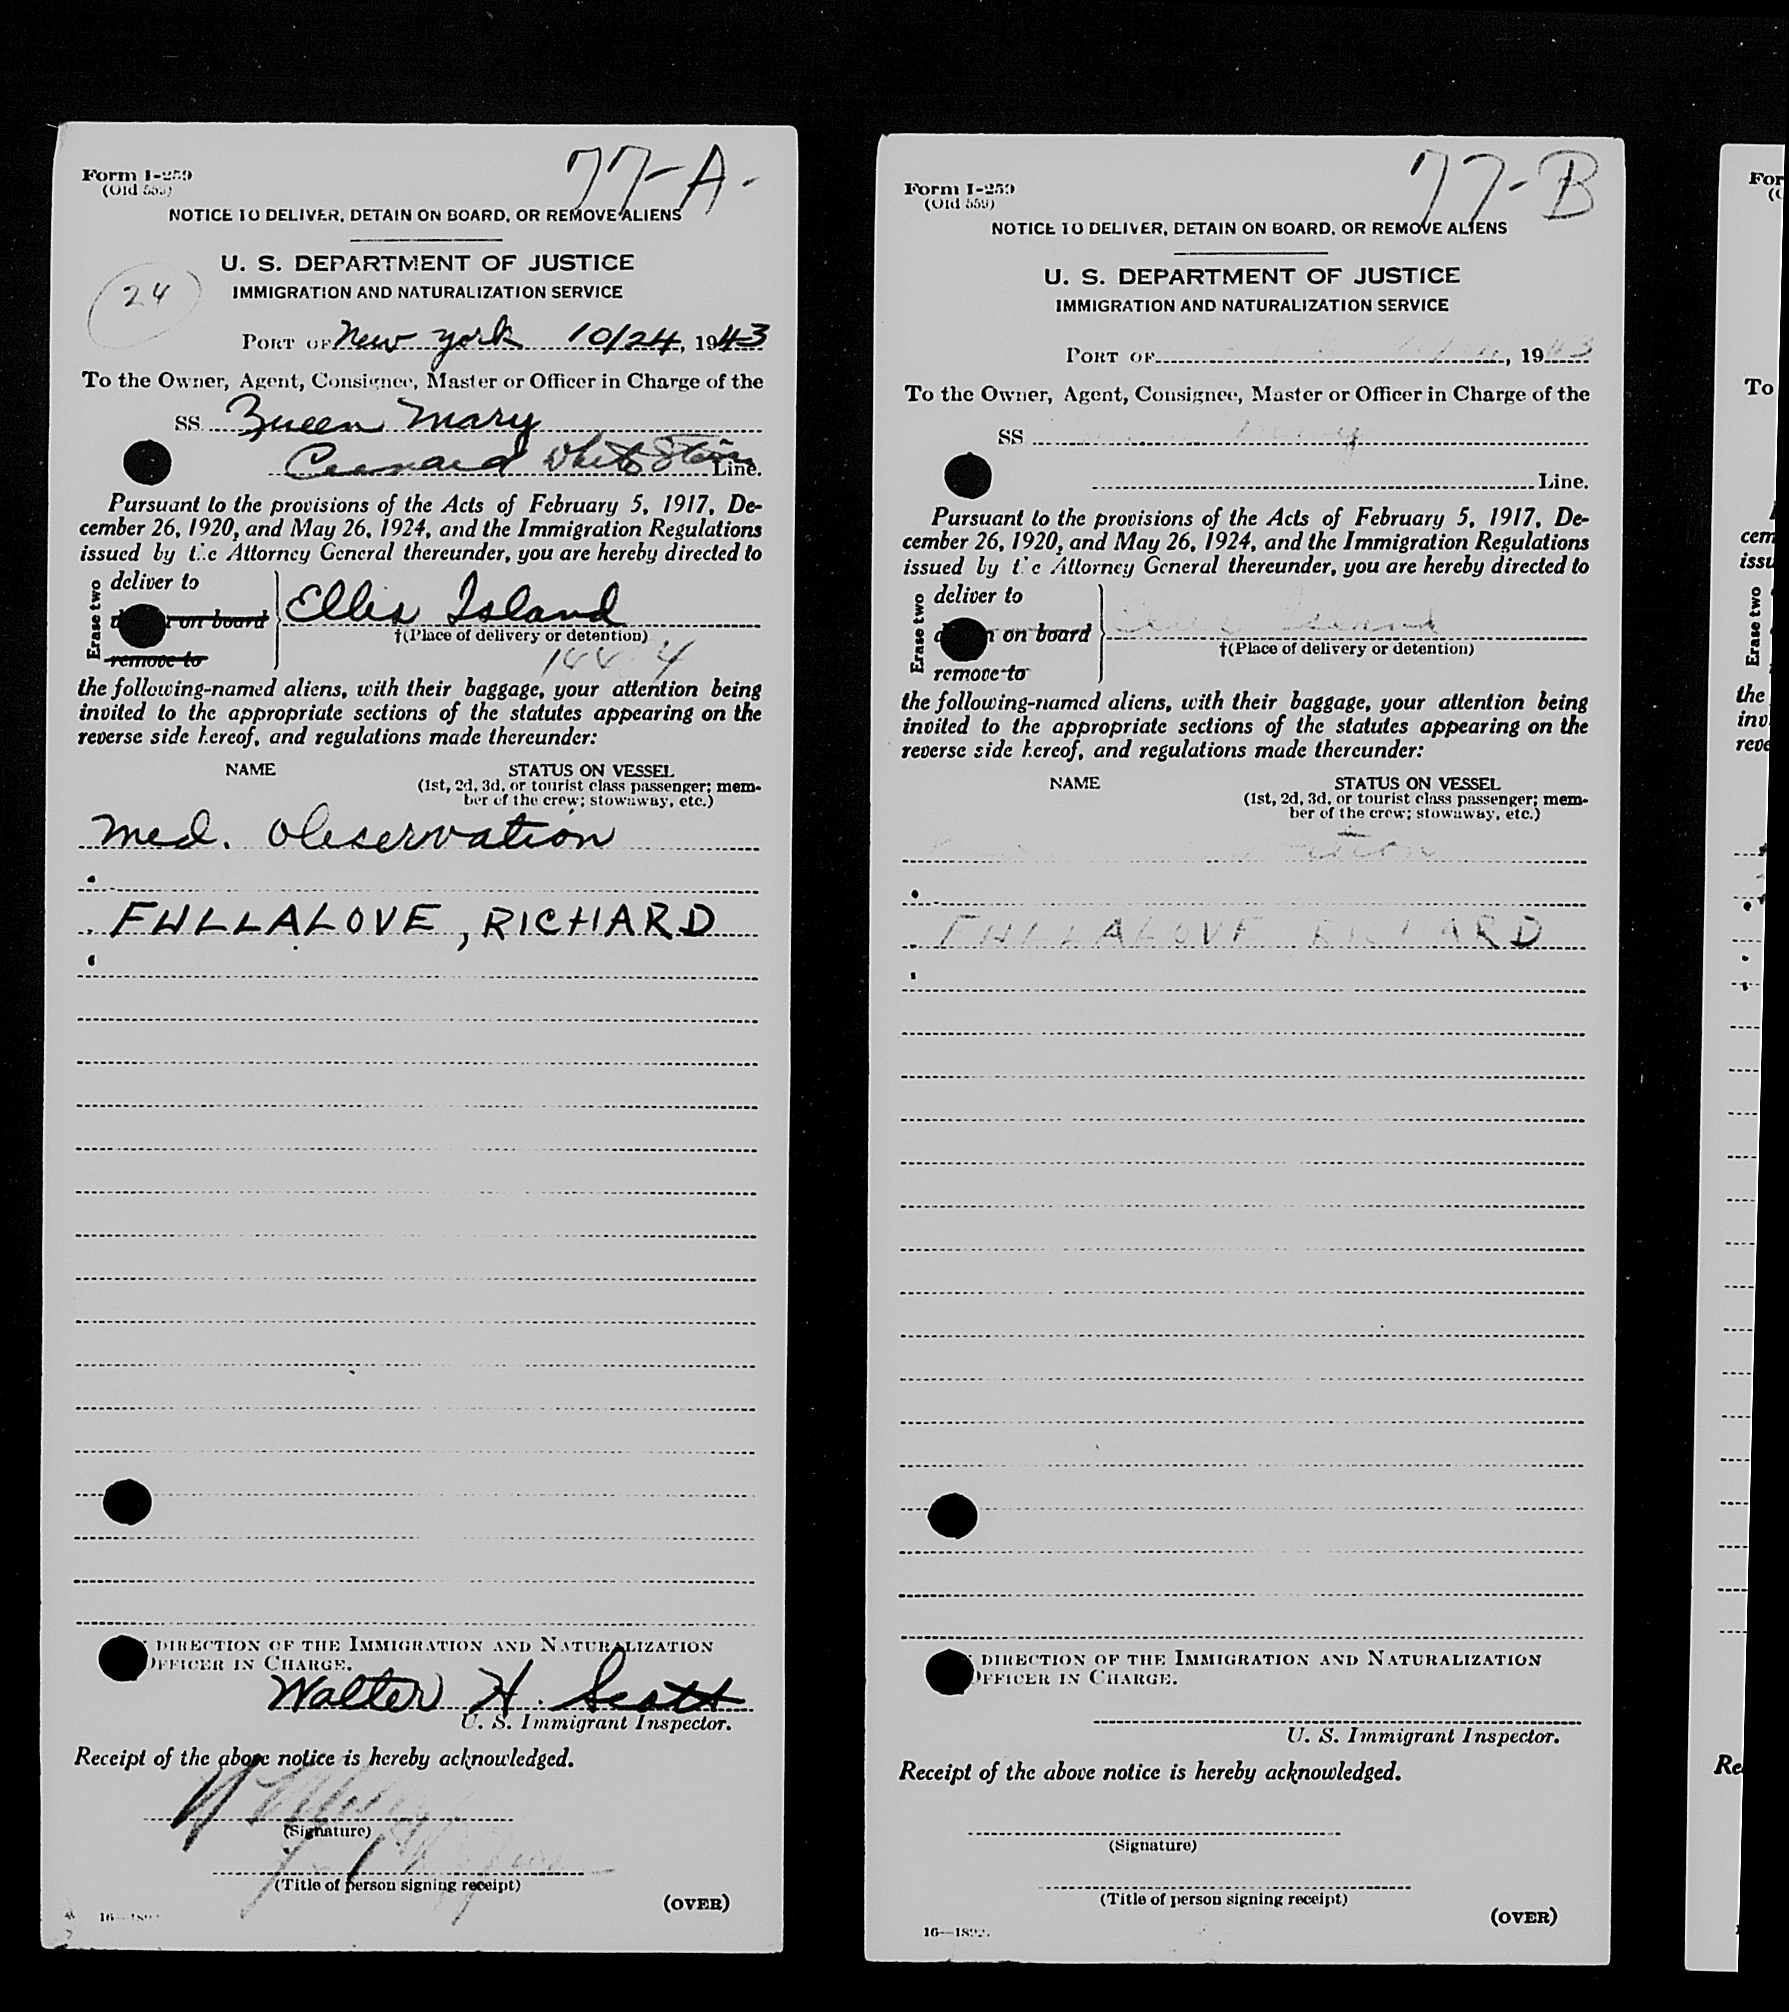 77-A-
Form I-259
(Old 559)
NOTICE TO DELIVER, DETAIN ON BOARD, OR REMOVE ALIENS
U. S. DEPARTMENT OF JUSTICE
24
IMMIGRATION AND NATURALIZATION SERVICE
PORT OF New York 10/24, 1943
To the Owner, Agent, Consignee, Master or Officer in Charge of the
SS Queen Mary
Cunard White Star Line.
Pursuant to the provisions of the Acts of February 5, 1917, De-
cember 26, 1920, and May 26, 1924, and the Immigration Regulations
issued by the Attorney General thereunder, you are hereby directed to
Erase two
deliver to
on board
remove to
Ellis Island
†(Place of delivery or detention)
the following-named aliens, with their baggage, your attention being
invited to the appropriate sections of the statutes appearing on the
reverse side hereof, and regulations made thereunder:
NAME STATUS ON VESSEL
(1st, 2d, 3d, or tourist class passenger; mem-
ber of the crew; stowaway, etc.)
Med. Observation
FULLALOVE, RICHARD
DIRECTION OF THE IMMIGRATION AND NATURALIZATION
OFFICER IN CHARGE.
Walter H. Scott
U. S. Immigrant Inspector.
Receipt of the above notice is hereby acknowledged.
(Signature)
(Title of person signing receipt)
(OVER)
77-B
Form I-259
(Old 559)
NOTICE TO DELIVER, DETAIN ON BOARD, OR REMOVE ALIENS
U. S. DEPARTMENT OF JUSTICE
IMMIGRATION AND NATURALIZATION SERVICE
PORT OF , 1943
To the Owner, Agent, Consignee, Master or Officer in Charge of the
SS
Line.
Pursuant to the provisions of the Acts of February 5, 1917, De-
cember 26, 1920, and May 26, 1924, and the Immigration Regulations
issued by the Attorney General thereunder, you are hereby directed to
Erase two
deliver to
on board
remove to
Ellis Island
†(Place of delivery or detention)
the following-named aliens, with their baggage, your attention being
invited to the appropriate sections of the statutes appearing on the
reverse side hereof, and regulations made thereunder:
NAME STATUS ON VESSEL
(1st, 2d, 3d, or tourist class passenger; mem-
ber of the crew; stowaway, etc.)
FULLALOVE RICHARD
DIRECTION OF THE IMMIGRATION AND NATURALIZATION
OFFICER IN CHARGE.
U. S. Immigrant Inspector.
Receipt of the above notice is hereby acknowledged.
(Signature)
(Title of person signing receipt)
(OVER)
For
To
cem
issu
Erase two
the
inv
reve
Re